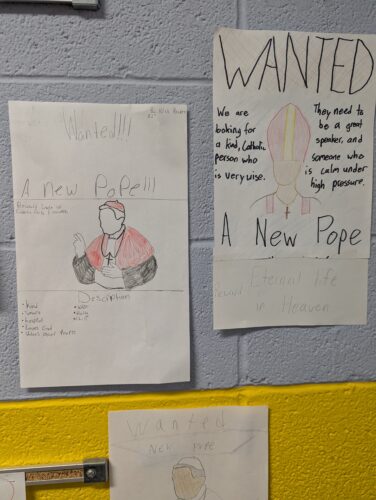 Wanted!!!
A new Pope!!!
Description
• Kind
• Helpful
• Loves God
WANTED
We are
looking for
a kind, Catholic
person who
is very wise.
They need to
be a great
speaker, and
someone who
is calm under
high pressure.
A New Pope
Reward Eternal life
in Heaven
Wanted
NEW POPE